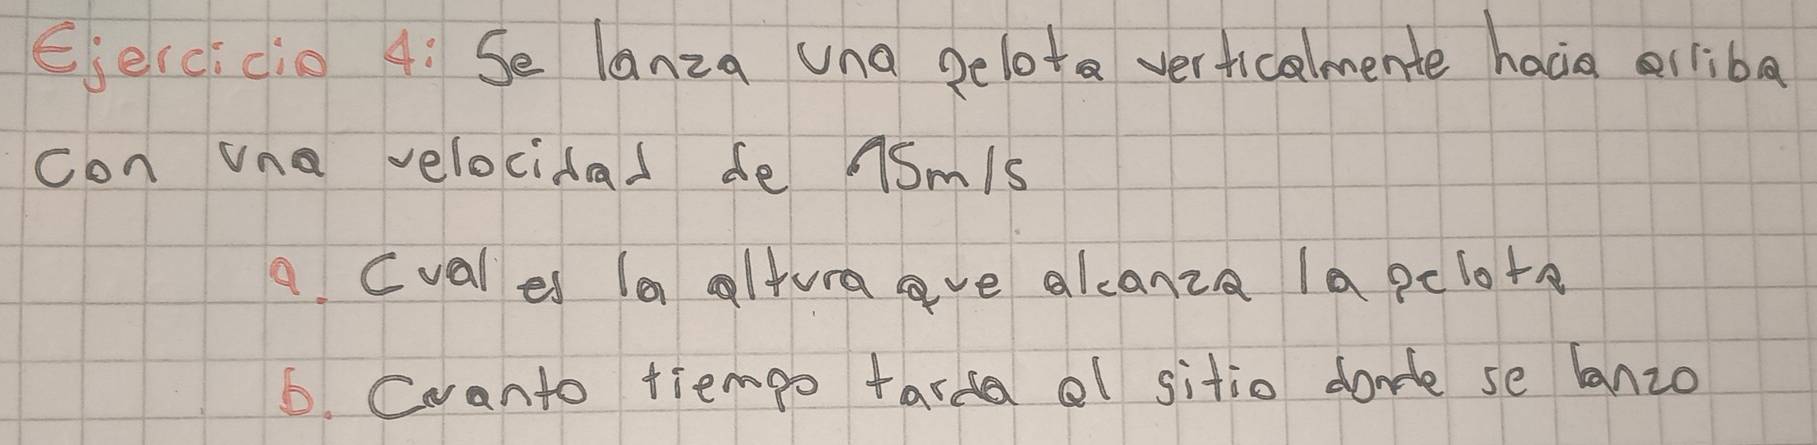 Ejercicio 4: Se lanza una pelota verticalmente hacia arriba
con una velocidad de 15m/s
a. Cual es la altura que alcanza la pelota
b. Cuanto tiempo tarda al sitio donde se lanzo